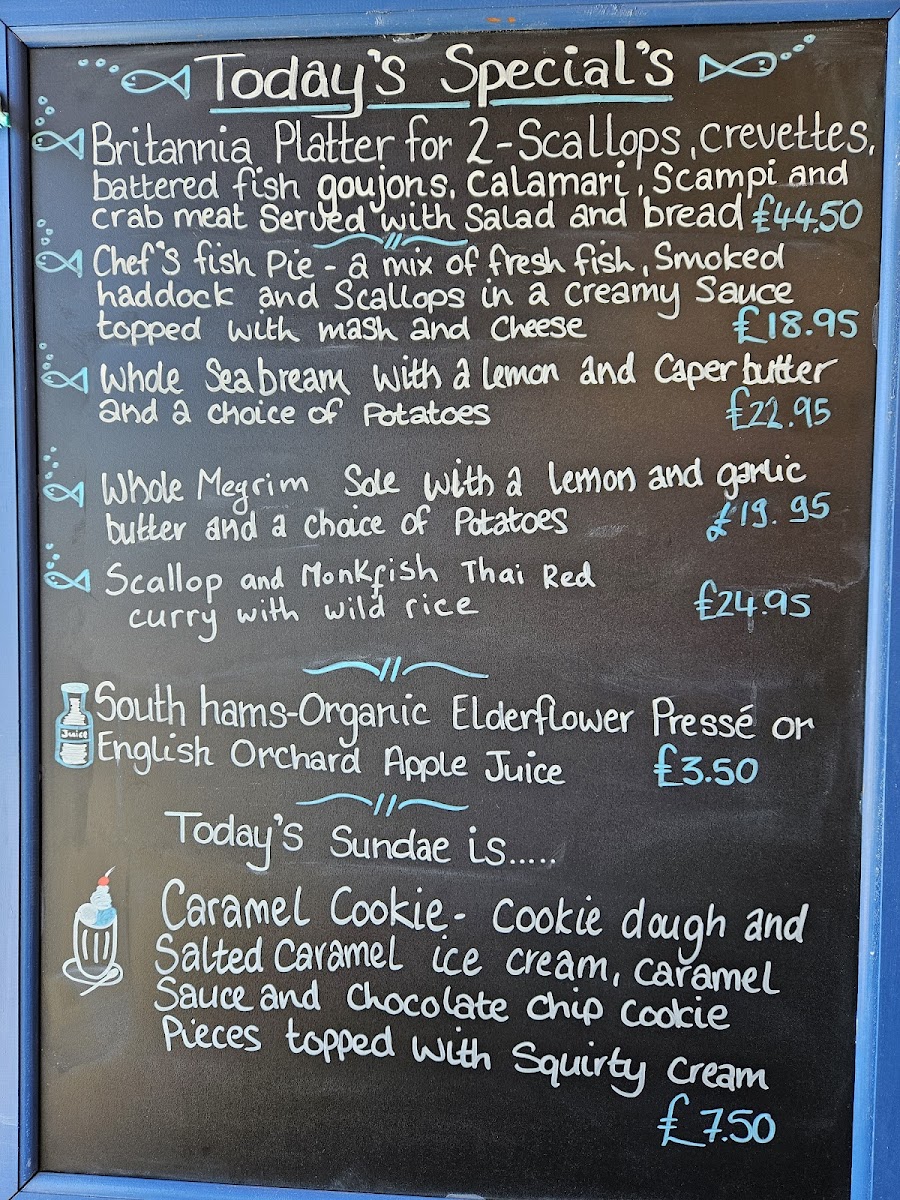 Today's Special's
Britannia Platter for 2-Scallops, crevettes,
battered fish goujons, calamari, Scampi and
crab meat Served with Salad and bread £44.50
Chef's fish Pie - a mix of fresh fish, Smoked
haddock and Scallops in a creamy Sauce
topped with mash and Cheese £18.95
Whole Seabream with a lemon and Caper butter
and a choice of Potatoes £22.95
Whole Megrim Sole with a lemon and garlic
butter and a choice of Potatoes £19.95
Scallop and Monkfish Thai Red
curry with wild rice £24.95
Juice
South hams-Organic Elderflower Pressé or
English Orchard Apple Juice £3.50
Today's Sundae is.....
Caramel Cookie - Cookie dough and
Salted Caramel ice cream, caramel
Sauce and Chocolate Chip Cookie
Pieces topped with Squirty Cream
£7.50